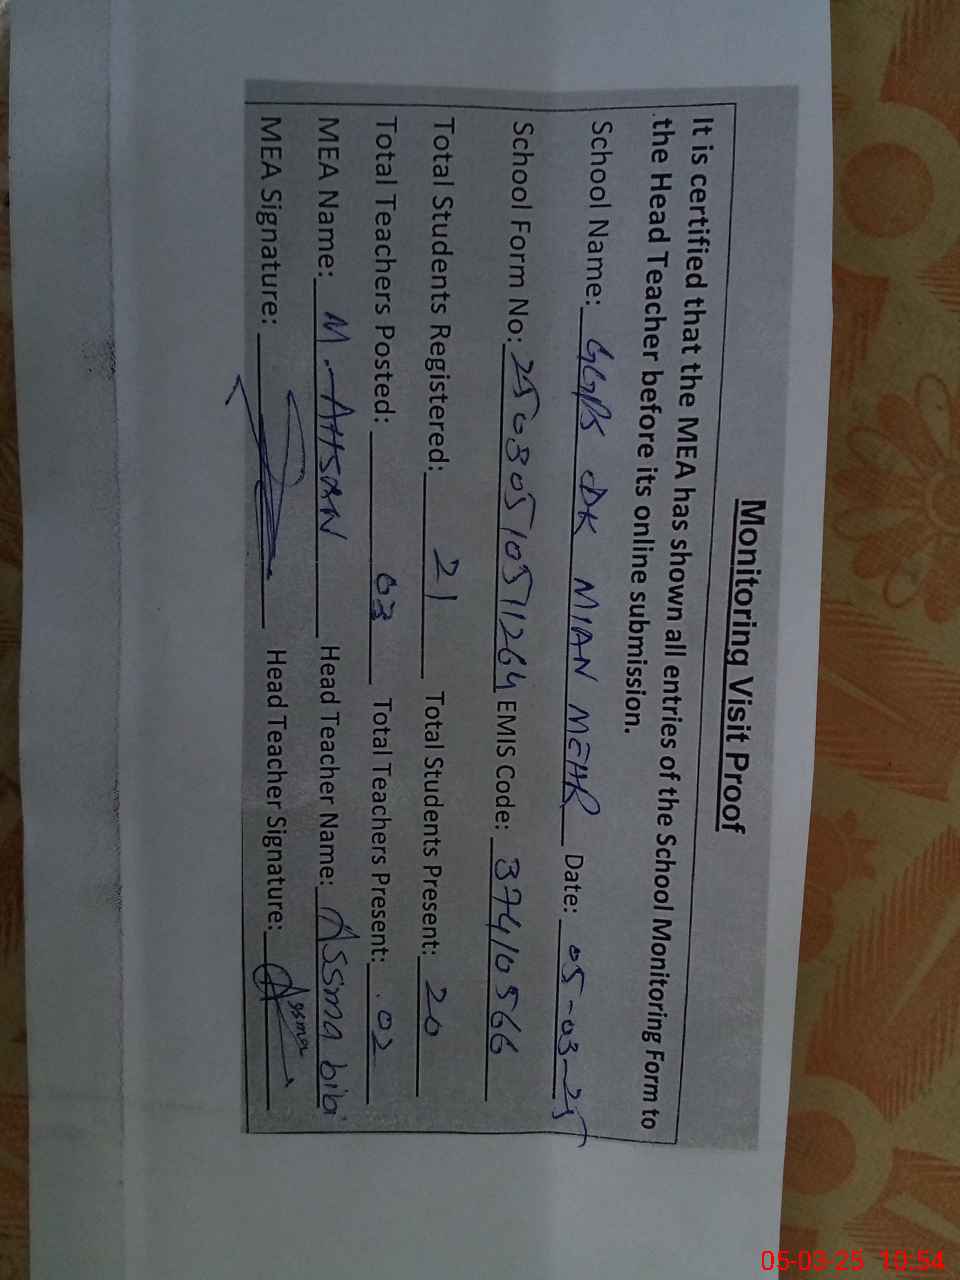 Monitoring Visit Proof
It is certified that the MEA has shown all entries of the School Monitoring Form to
the Head Teacher before its online submission.
School Name: GGPS DK MIAN MEHR Date: 05-03-25
School Form No: 2503051051264 EMIS Code: 37410566
Total Students Registered: 21 Total Students Present: 20
Total Teachers Posted: 03 Total Teachers Present: .02
MEA Name: M. AHSAN Head Teacher Name: Assma bibi
MEA Signature: Head Teacher Signature: Assma
05-03-25 10:54